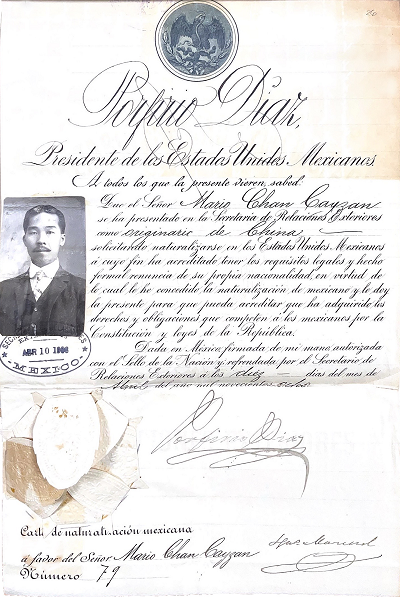 80
Porfirio Diaz,
Presidente de los Estados Unidos Mexicanos
A todos los que la presente vieren, sabed:
Que el Señor Mario Chan Cayzan
se ha presentado en la Secretaría de Relaciones Exteriores
como originario de China
solicitando naturalizarse en los Estados Unidos Mexicanos
á cuyo fin ha acreditado tener los requisitos legales y hecho
formal renuncia de su propia nacionalidad, en virtud de
lo cual le he concedido la naturalización de mexicano y le doy
la presente para que pueda acreditar que ha adquirido los
derechos y obligaciones que competen á los mexicanos por la
Constitución y leyes de la República.
Dada en México, firmada de mi mano, autorizada
con el Sello de la Nación y refrendada por el Secretario de
Relaciones Exteriores á los diez días del mes de
Abril del año mil novecientos ocho
ABR 10 1908
MEXICO.
Porfirio Diaz
Carta de naturalisación mexicana
á favor del Señor Mario Chan Cayzan
Número 79